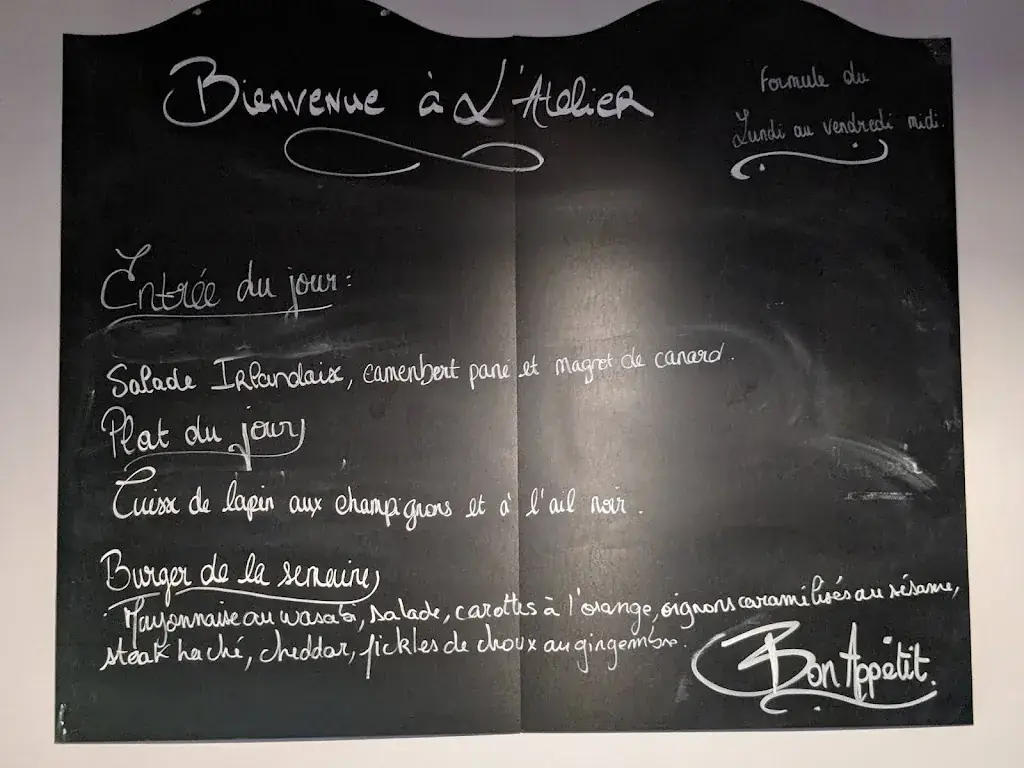 Bienvenue à L'Atelier
Formule du
Lundi au vendredi midi.
Entrée du jour :
Salade Irlandaise, camembert pané et magret de canard.
Plat du jour
Cuisse de lapin aux champignons et à l'ail noir.
Burger de la semaine
Mayonnaise au wasabi, salade, carottes à l'orange, oignons caramélisés au sésame,
steak haché, cheddar, pickles de choux au gingembre.
Bon Appétit.